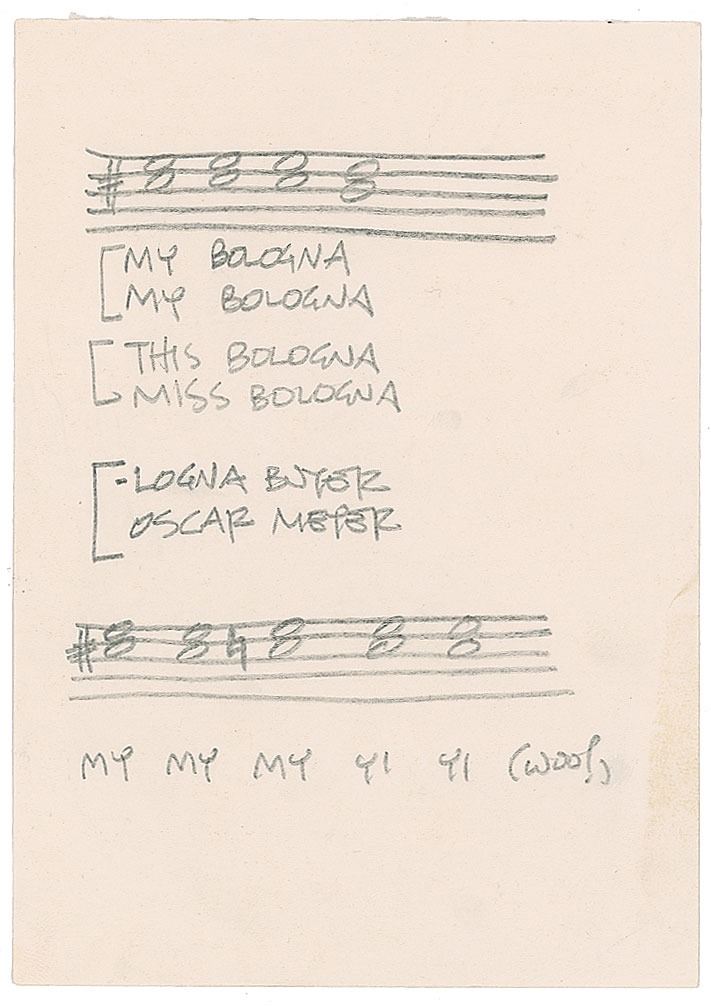 MY BOLOGNA
MY BOLOGNA
THIS BOLOGNA
MISS BOLOGNA
-LOGNA BUYER
OSCAR MEYER
MY MY MY YI YI (WOO!)